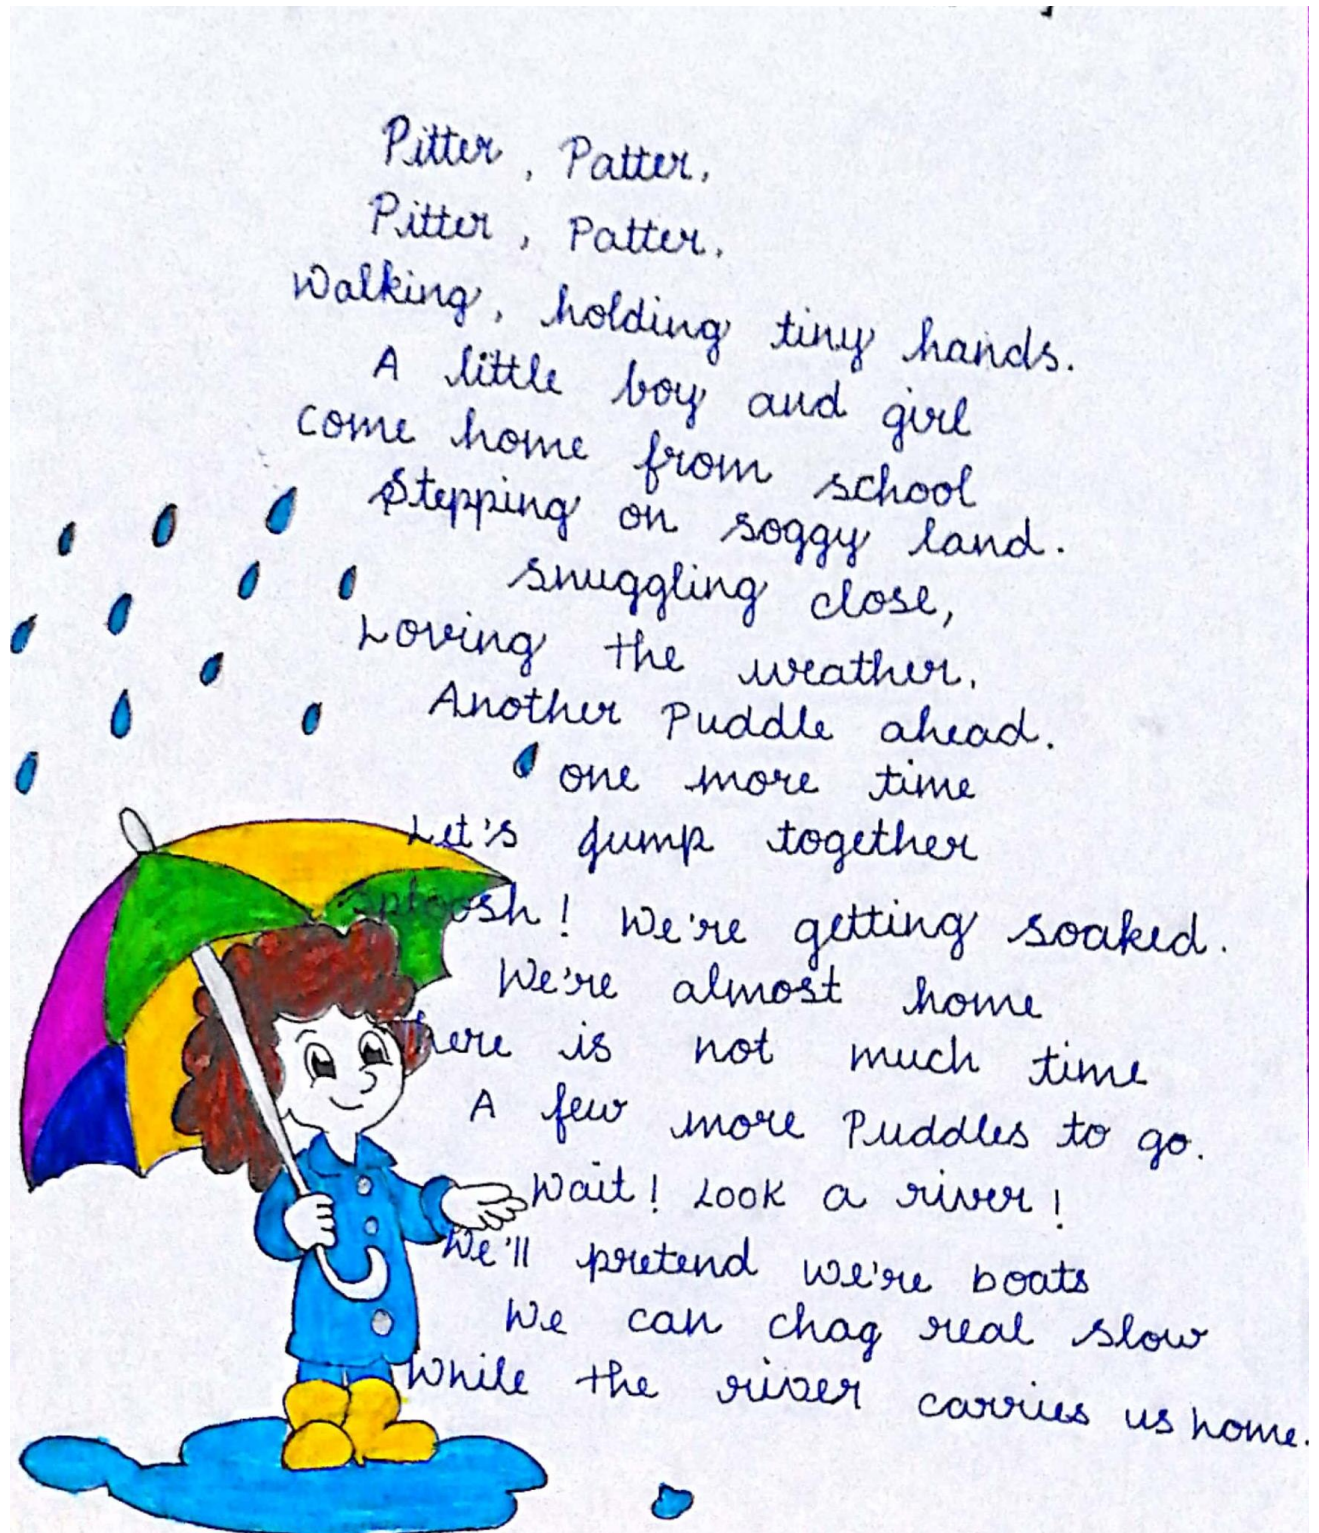 Pitter, Patter,
Pitter, Patter.
Walking, holding tiny hands.
A little boy and girl
come home from school
Stepping on soggy land.
snuggling close,
Loving the weather.
Another Puddle ahead.
one more time
Let's jump together
sploosh! We're getting soaked.
We're almost home
here is not much time
A few more Puddles to go.
Wait! Look a river!
We'll pretend we're boats
We can chag real slow
While the river carries us home.